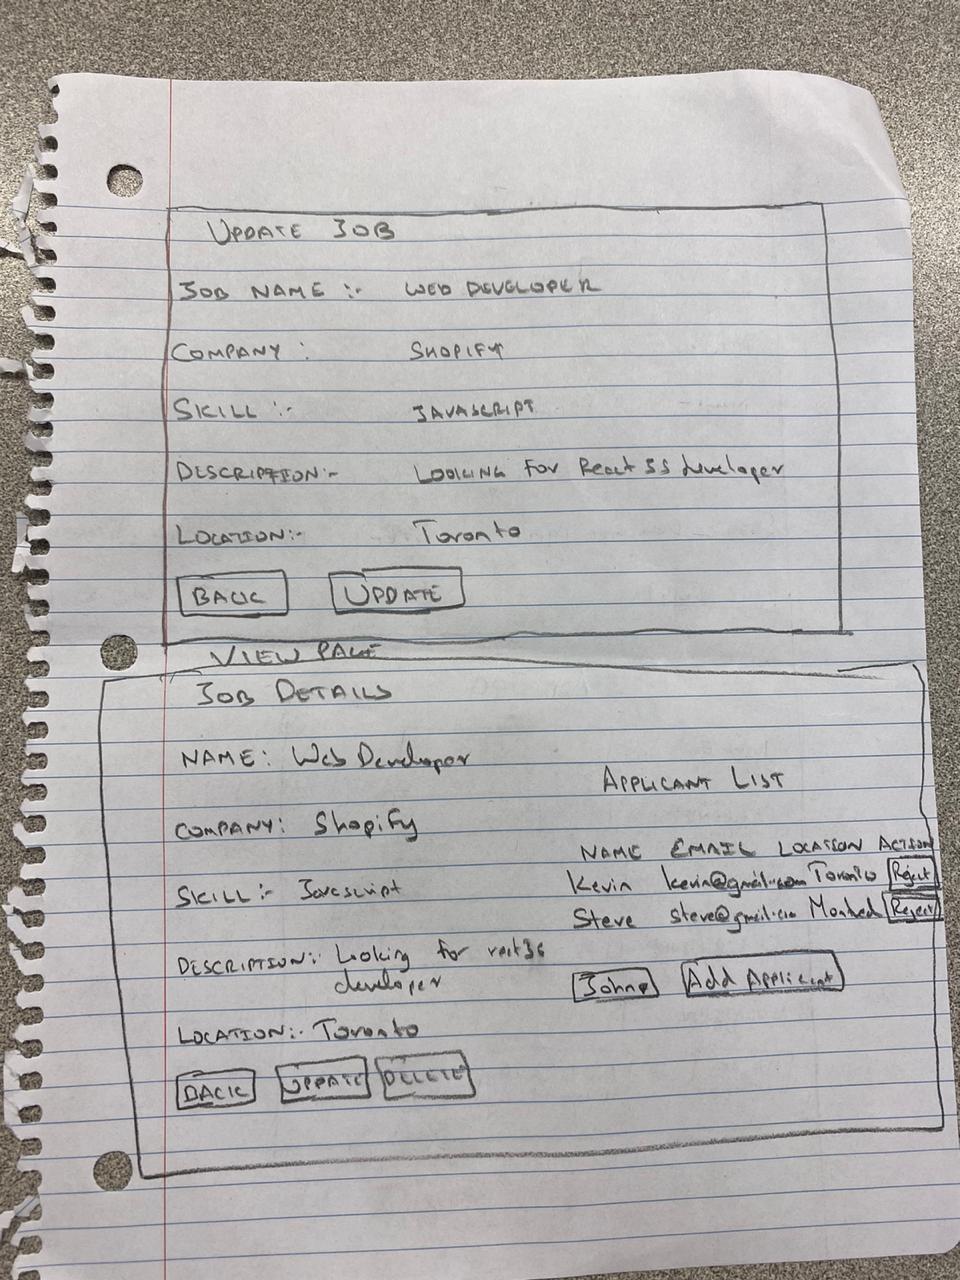 UPDATE JOB
JOB NAME :- WEB DEVELOPER
COMPANY : SHOPIFY
SKILL :- JAVASCRIPT
DESCRIPTION:- LOOKING FOR React JS developer
LOCATION:- Toronto
BACK UPDATE
VIEW PAGE
JOB DETAILS
NAME: Web Developer
COMPANY: Shopify
SKILL :- Javascript
DESCRIPTION:- Looking for
developer
LOCATION:- Toronto
BACK UPDATE DELETE
APPLICANT LIST
NAME EMAIL LOCATION ACTION
Kevin kevin@gmail.com Toronto Reject
Steve Reject
Add Applicant